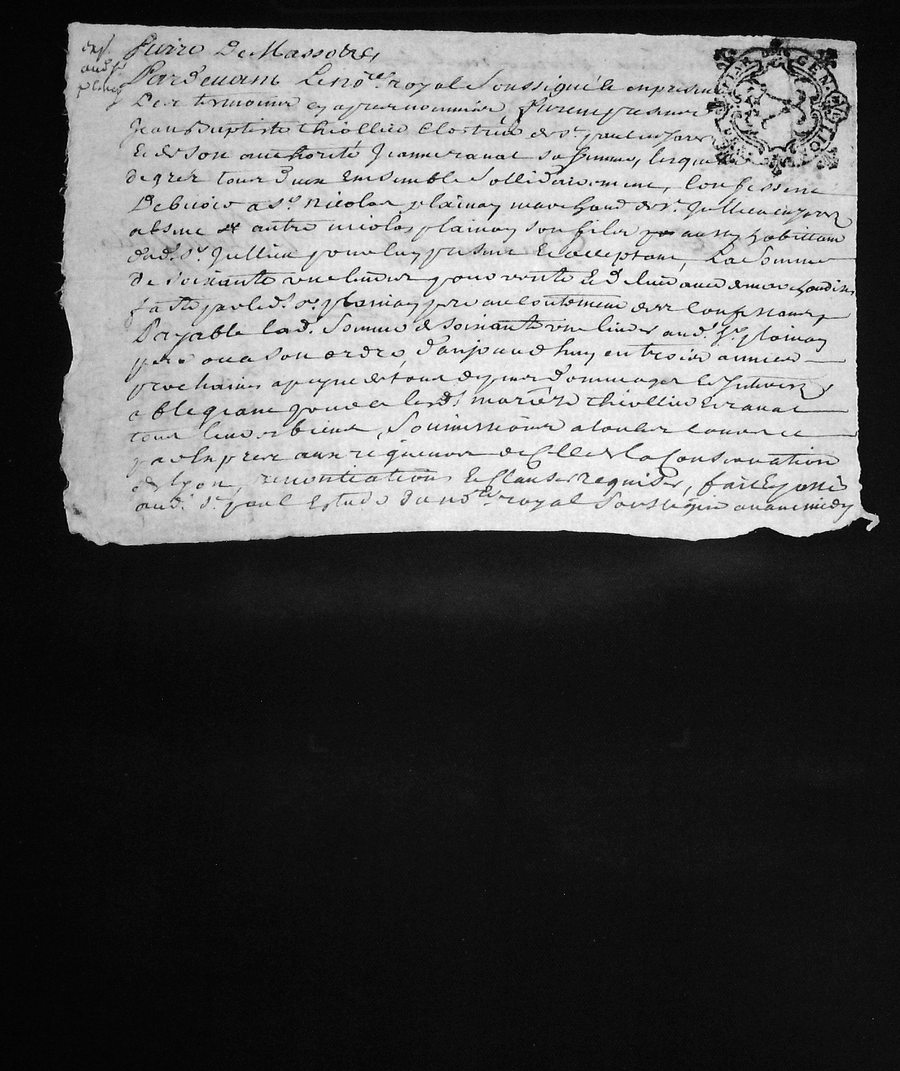 exp.
aud. sr
plainy
Pardevant Le no.re royal Soussigné & en presence
Des tesmoins cy apres nommés furent presens
Jean Baptiste thiollier de st paul en Jarez
Et de son authorité Jeanne ranat sa femme, lesquels
de gréz tous deux Ensemble Sollidairement, Confessent
Debvoir a sr. nicolas plainy marchand de st. Jullien en Jarez
absent et autre nicolas plainy son fils aussy habittant
dud. st. Jullien pour luy present Et acceptant, La Somme
de soixante une livres pour vente Et delivrance de marchandises
faitte par led. sr. plainy pere au contentement des Confessants
Payable lad. Somme de soixante une livres aud. sr. plainy
pere ou a son ordre, d'aujourd'huy en trois années
prochaines a peyne de tous despens dommages & Interests
obligeant pour ce lesd. mariés thiollier Et ranat
tous leurs biens, Soumissions a toutes Cours
par Exprez aux rigueurs de Celle de la Conservation
de Lyon, renontiations Et Clauses requises, fait & passé
aud. st. paul Estude du no.re royal Soussigné avant midy